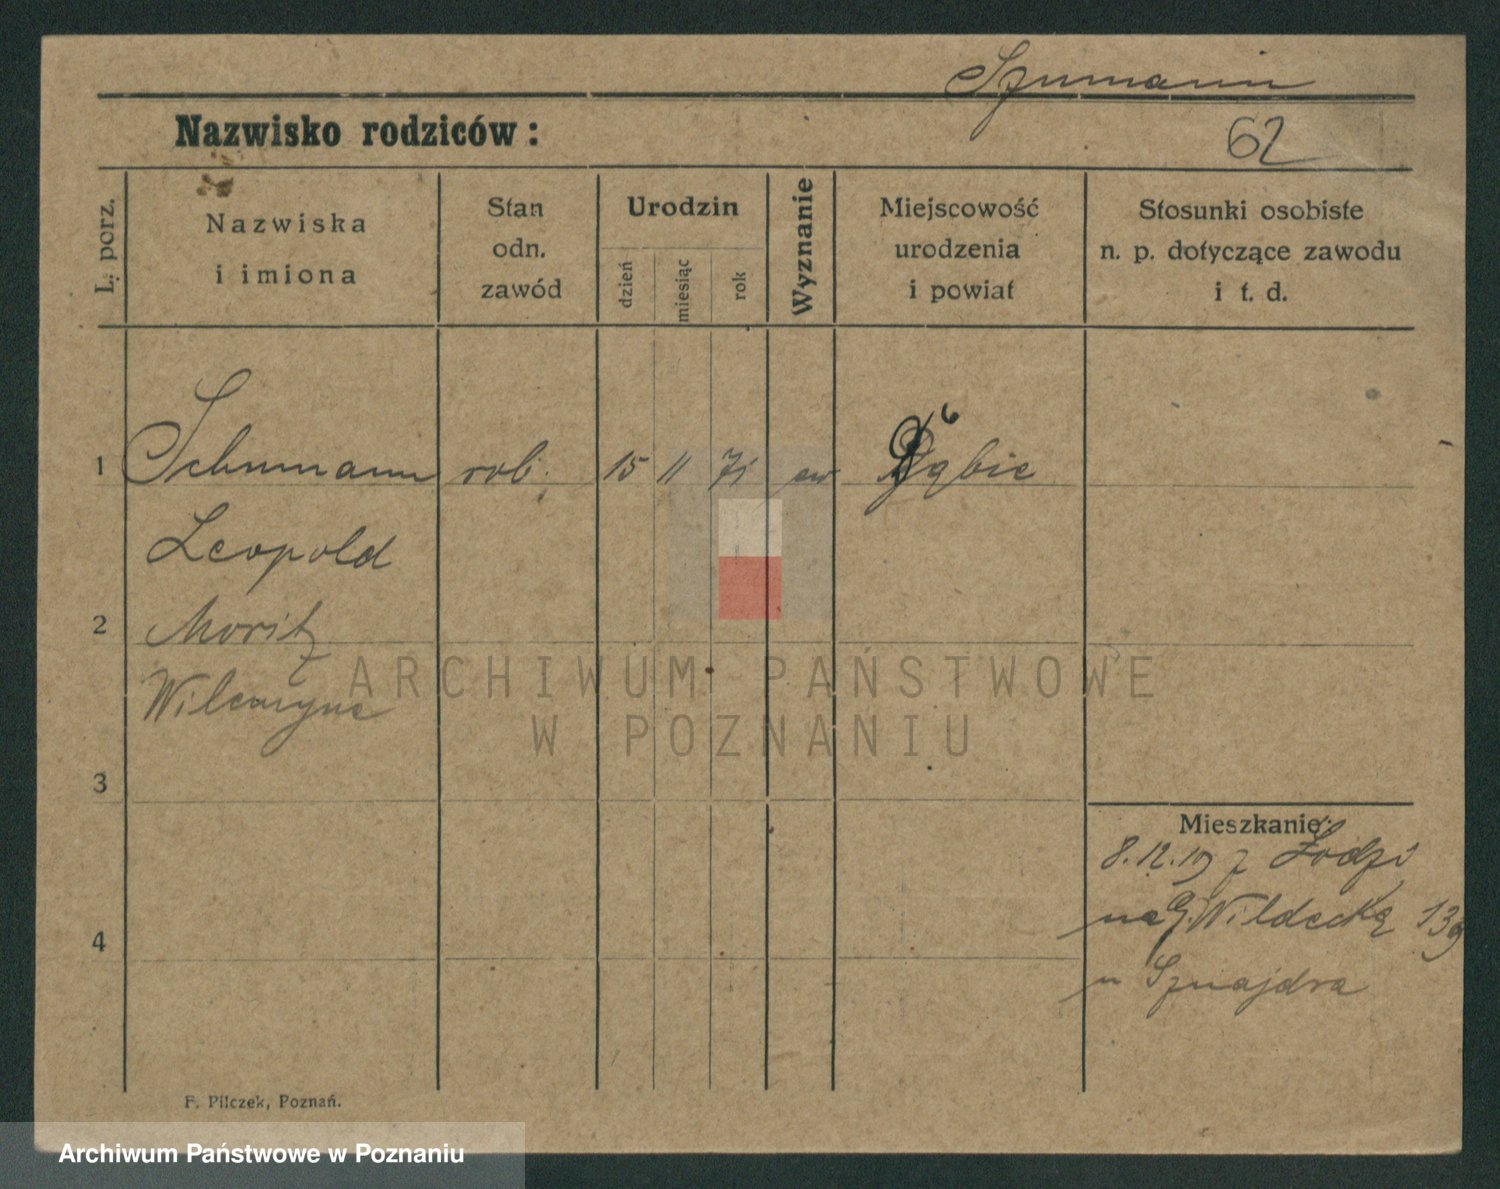 Szumann
Nazwisko rodziców:
62
L. porz.
Nazwiska
i imiona
Stan
odn.
zawód
Urodzin
dzień
miesiąc
rok
Wyznanie
Miejscowość
urodzenia
i powiat
Stosunki osobiste
n. p. dotyczące zawodu
i t. d.
1 Schumann rob. 15 11 71 ew Dąbie
6
Leopold
2 Moritz
3
ARCHIWUM PAŃSTWOWE
W POZNANIU
Mieszkanie:
8.12.19 z Łodzi
na G. Wildecką 139
4
u Sznajdra
F. Pilczek, Poznań.
Archiwum Państwowe w Poznaniu